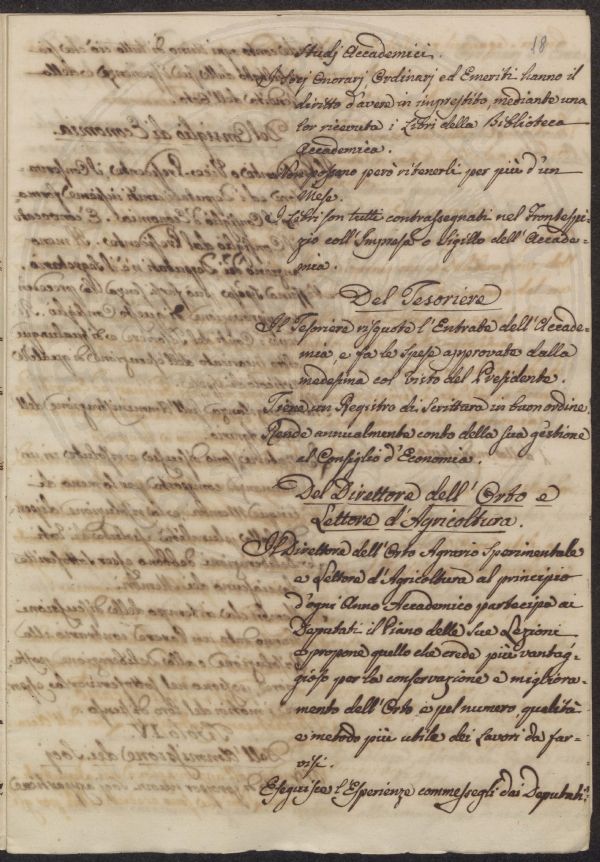 18
Studj Accademici.
Socj Onorarj Ordinarj ed Emeriti hanno il
diritto d'avere in imprestito, mediante una
lor ricevuta i Libri della Biblioteca
Accademica.
Non possono però ritenerli per più d'un
Mese.
I Libri son tutti contrassegnati nel Frontespi-
zio coll'Impresa o Sigillo dell'Accade-
mia.
Del Tesoriere
Il Tesoriere risquote l'Entrate dell'Accade-
mia e fa le spese approvate dalla
medesima col Visto del Presidente.
Tiene un Registro di Scrittura in buon ordine.
Rende annualmente conto della sua gestione
al Consiglio d'Economia.
Del Direttore dell'Orto e
Lettore d'Agricoltura.
Il Direttore dell'Orto Agrario Sperimentale
e Lettore d'Agricoltura al principio
d'ogni Anno Accademico partecipa ai
Deputati il Piano delle sue Lezioni
e propone quello che crede più vantag-
gioso per la conservazione e migliora-
mento dell'Orto e pel numero, qualità
e metodo più utile dei Lavori da far-
visi.
Eseguisce l'Esperienze commessegli dai Deputati